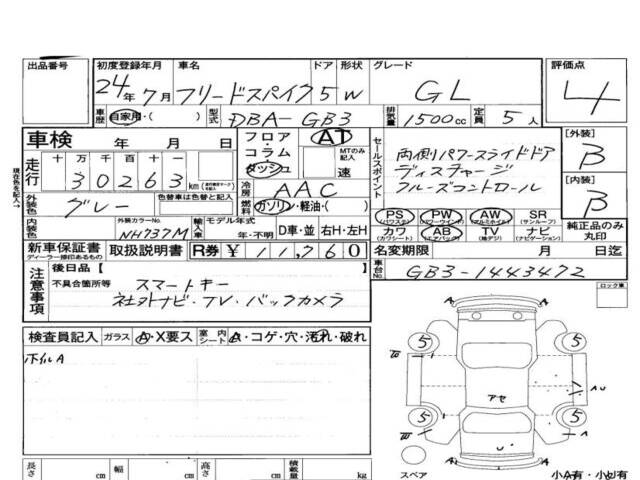 出品番号 初度登録年月 車名 ドア 形状 グレード 評価点
24年 7月 フリードスパイク 5 W GL 4
車歴 自家用・( ) 型式 DBA-GB3 排気量 1500cc 定員 5人
車検 年 月 日 フロア・コラム・ダッシュ AT MTのみ記入 速
走行 十 万 千 百 十 一
30263 km
セールスポイント 両側パワースライドドア
ディスチャージ
クルーズコントロール
[外装] B
[内装] B
冷房 AAC
外装色 グレー 色替車は色替と記入 燃料 ガソリン・軽油・( )
現在色を記入→
内装色 外装カラーNo. NH737M 輸入車 モデル年式 年・不明 D車・並 右H・左H
PS (パワステ) PW (パワーウインド) AW (アルミホイル) SR (サンルーフ)
カワ (カワシート) AB (エアバッグ) TV (地デジ) ナビ (ナビゲーション)
純正品のみ丸印
新車保証書 ディーラー捺印あるもの 取扱説明書 R券 ¥11,760 名変期限 月 日迄
注意事項 後日品【 】 車台No. GB3-1443472
不具合箇所等 スマートキー
社外ナビ・TV・バックカメラ
ロック車
検査員記入 ガラス A・X要ス 室内シート A・コゲ・穴・汚れ・破れ
ホイルA
A A
W 5 5
アセ AU
W 5 5
U
A A
スペア 小A有・小U有
長さ cm 幅 cm 高さ cm 積載量 kg